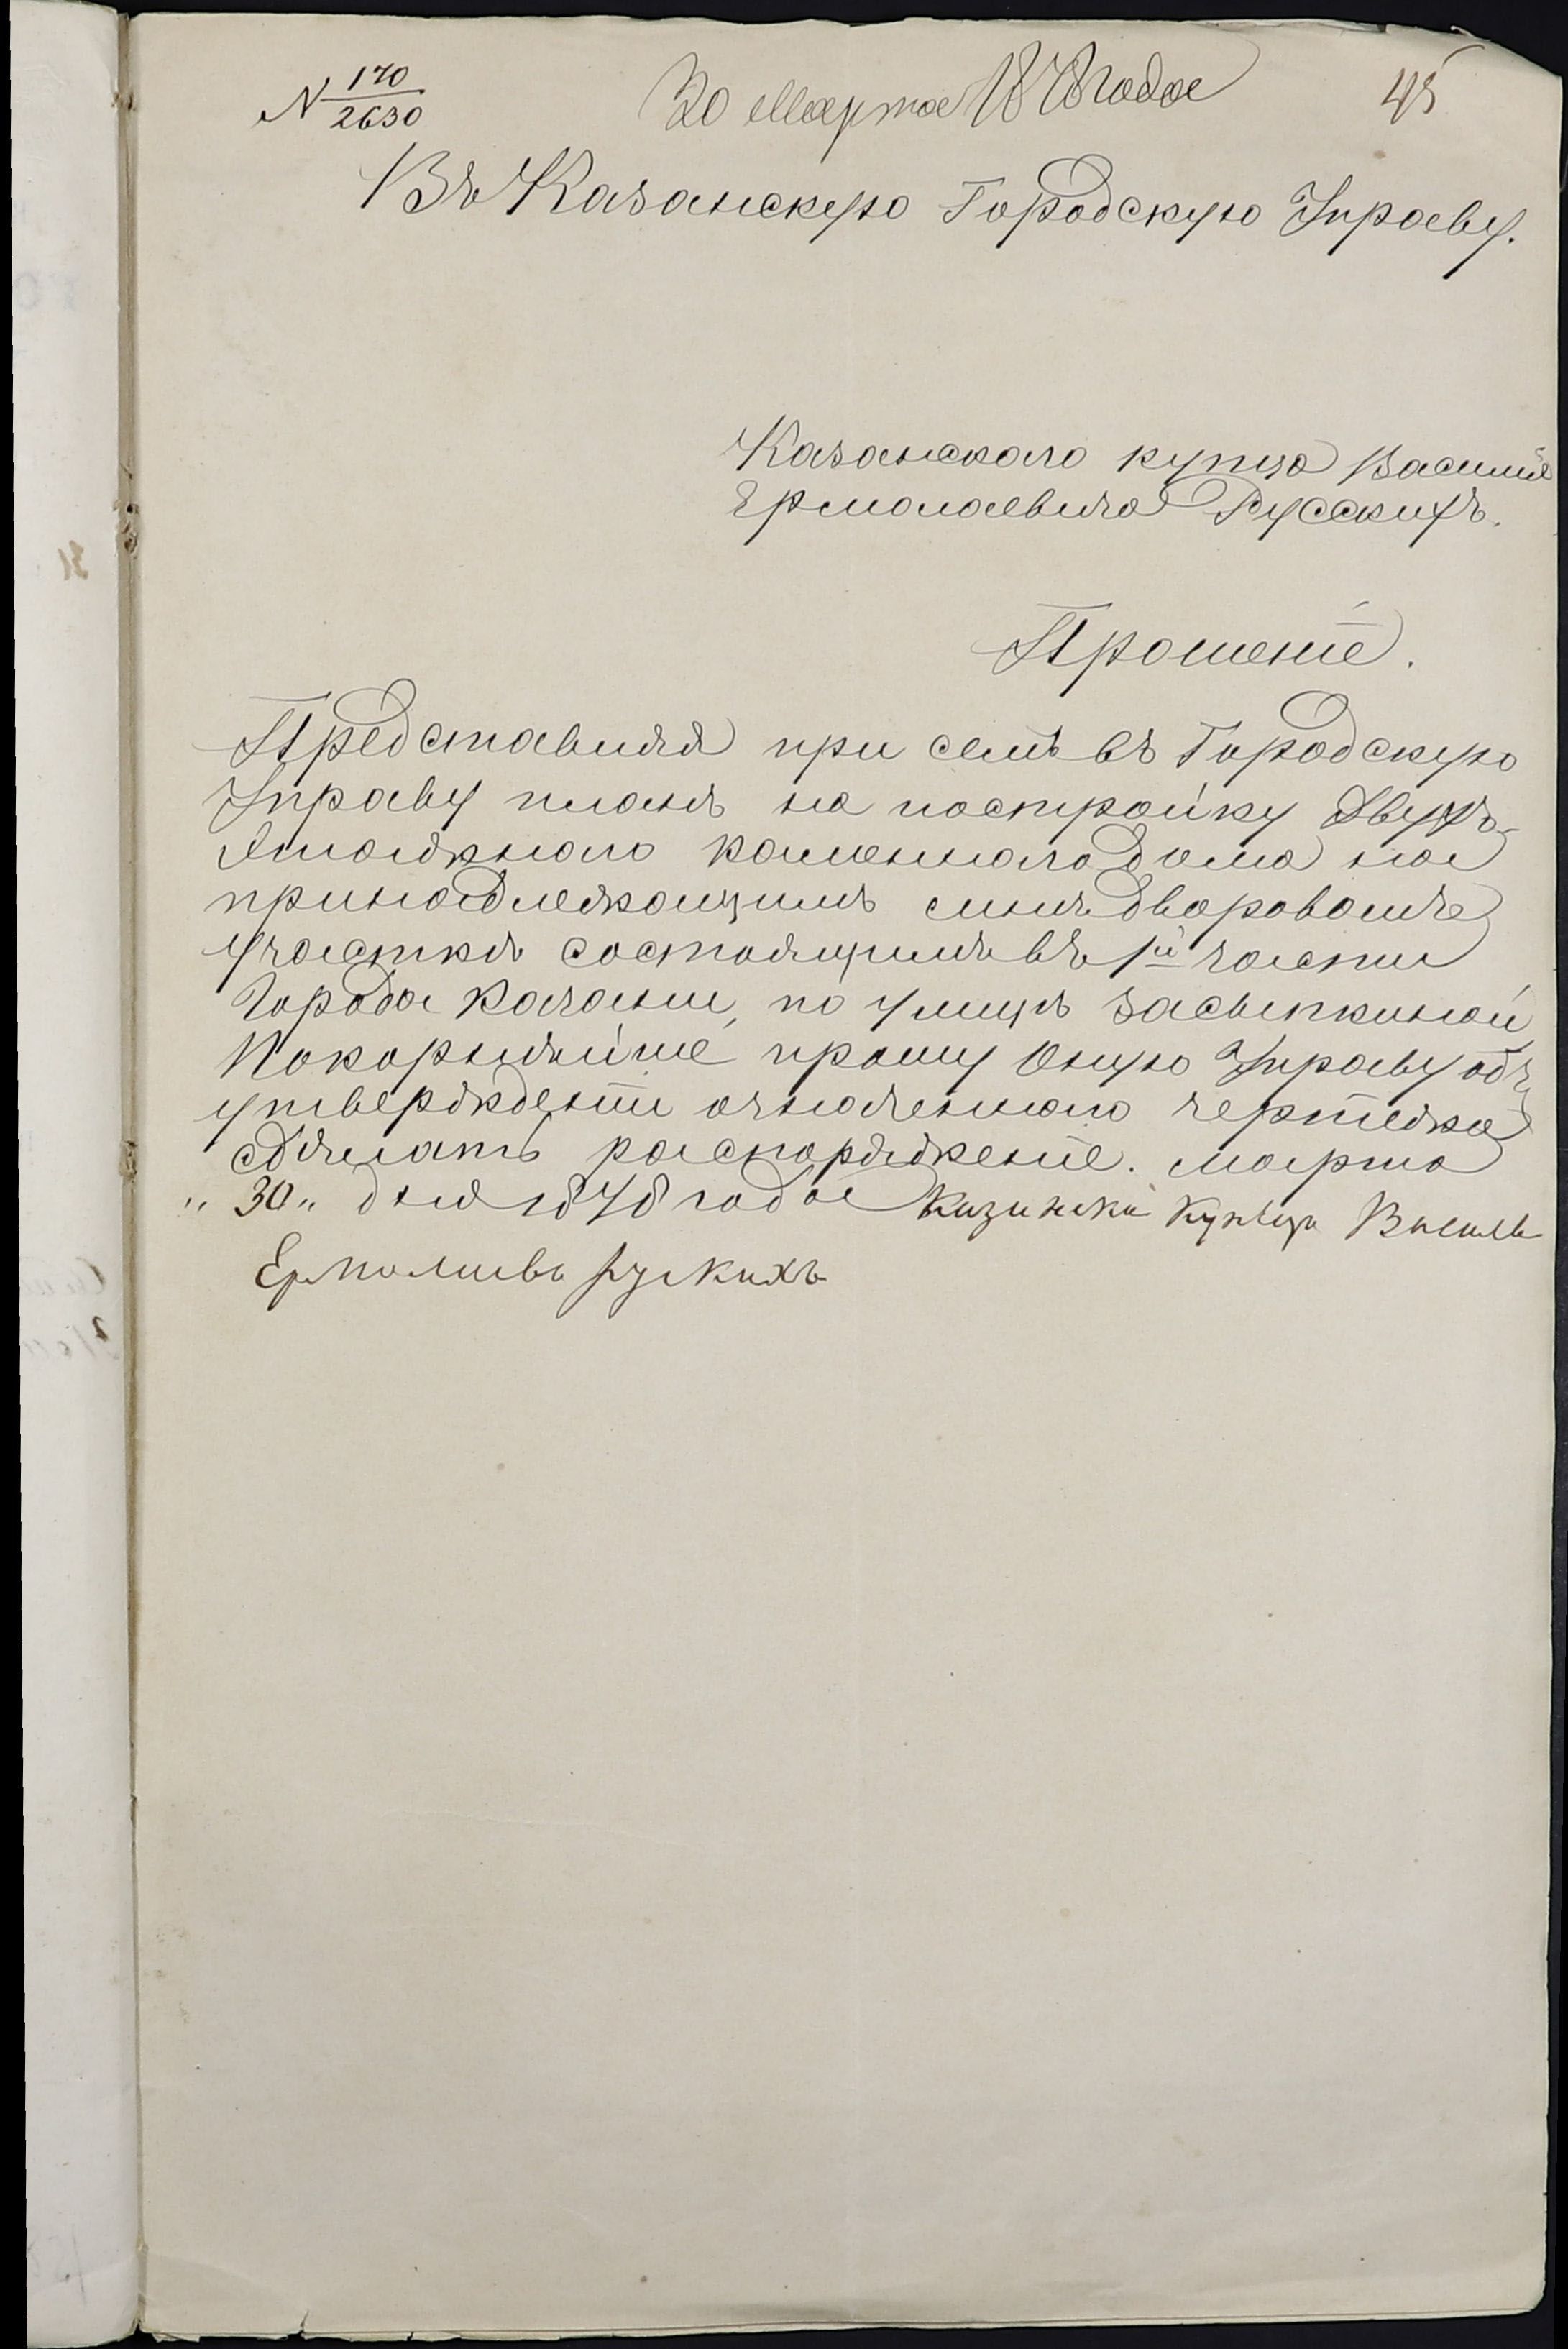 N 170/2630 30 Марта 1878 года 45
Въ Казанскую Городскую Управу.
Казанского купца Василия
Ермолаевича Русскихъ.
Прошеніе.
Представляя при семъ въ Городскую
Управу планъ на постройку Двухъ-
этажного каменного дома на
принадлежащимъ мнѣ дворовомъ
участкѣ состоящимъ въ 1й части
Города Казани, по улицѣ Засыпкиной
Покорнѣйше прошу Оную Управу объ
утвержденіи означенного чертежа
сдѣлать распоряженіе. Марта
„30„ дня 1878 года Казански Купецъ Василь
Ермолаивъ Рускихъ